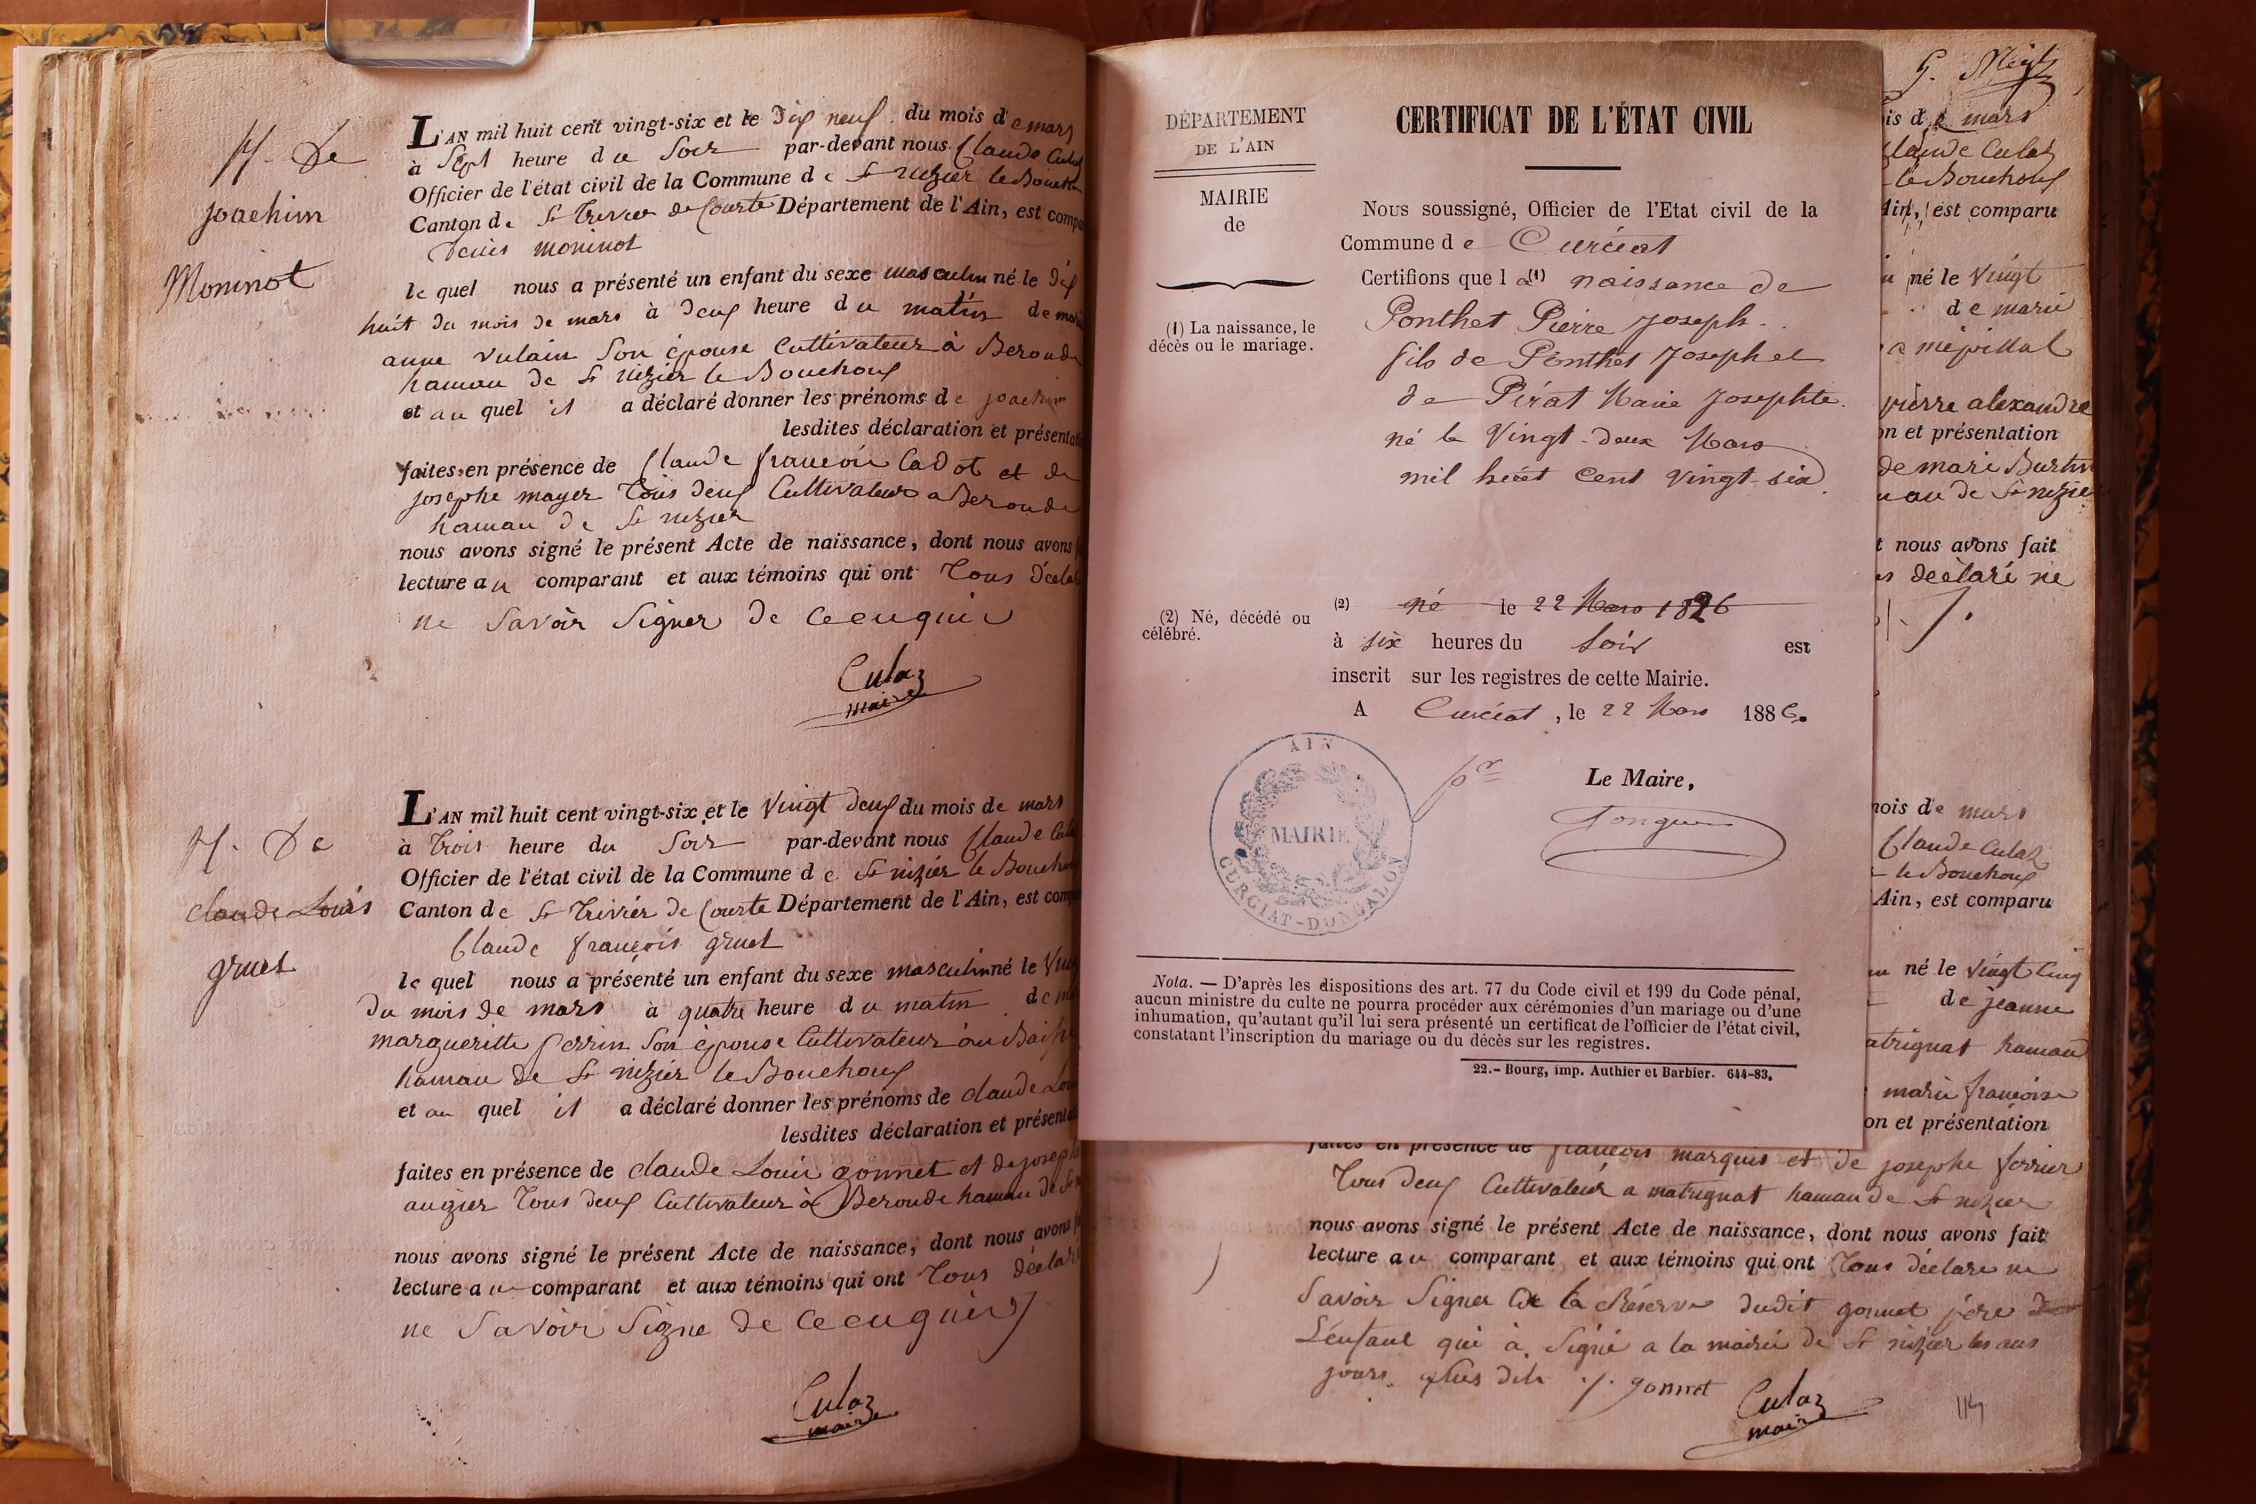 N. De
Joachim
Moninot
L'AN mil huit cent vingt-six et le Dix neuf du mois de mars
à Sept heure du Soir par-devant nous Claude Culaz
Officier de l'état civil de la Commune de St nizier le Bouchoux
Canton de St Trivier de Courte Département de l'Ain, est compa
Denis moninot
le quel nous a présenté un enfant du sexe masculin né le dix
huit du mois de mars à deux heure du matin de marie
anne vulain Son épouse Cultivateur à Beronde
hamau de St nizier le Bouchoux
et au quel il a déclaré donner les prénoms de joachim
lesdites déclaration et présentat
faites en présence de Claude françois Cadot et de
josephe mayer Tous deux Cultivateur a Beronde
hamau de St nizier
nous avons signé le présent Acte de naissance, dont nous avons
lecture au comparant et aux témoins qui ont Tous déclar
ne Savoir Signer de ce enquis
Culaz
maire
N. De
claude Louis
gruet
L'AN mil huit cent vingt-six et le Vingt deux du mois de mars
à Trois heure du Soir par-devant nous Claude Cula
Officier de l'état civil de la Commune de St nizier le Bouchoux
Canton de St Trivier de Courte Département de l'Ain, est comp
Claude françois gruet
le quel nous a présenté un enfant du sexe masculin né le Vin
du mois de mars à quatre heure du matin de
margueritte perrin Son épouse Cultivateur au
hamau de St nizier le Bouchoux
et au quel il a déclaré donner les prénoms de claude Lou
lesdites déclaration et présenta
faites en présence de claude Louis gonnet et de joseph
augier Tous deux Cultivateur à Beronde hamau de St
nous avons signé le présent Acte de naissance, dont nous avons
lecture au comparant et aux témoins qui ont Tous déclar
ne Savoir Signe de ce enquis
Culaz
maire
DÉPARTEMENT
DE L'AIN
MAIRIE
de
(1) La naissance, le
décès ou le mariage.
(2) Né, décédé ou
célébré.
CERTIFICAT DE L'ÉTAT CIVIL
Nous soussigné, Officier de l'Etat civil de la
Commune de Curciat
Certifions que la (1) naissance de
Ponthet Pierre Joseph
fils de Ponthet Joseph et
de Pérat Marie Josephte
né le Vingt-deux Mars
mil huit cent vingt-six
(2) né le 22 Mars 1826
à six heures du Soir est
inscrit sur les registres de cette Mairie.
A Curciat, le 22 Mars 1886.
pr Le Maire,
AIN
MAIRIE
CURCIAT-DONGALON
Nota. — D'après les dispositions des art. 77 du Code civil et 199 du Code pénal,
aucun ministre du culte ne pourra procéder aux cérémonies d'un mariage ou d'une
inhumation, qu'autant qu'il lui sera présenté un certificat de l'officier de l'état civil,
constatant l'inscription du mariage ou du décès sur les registres.
22.- Bourg, imp. Authier et Barbier. 644-83.
is de mars
Claude Culaz
le Bouchoux
Ain, est comparu
né le Vingt
de marie
pierre alexandre
on et présentation
de mari Burtin
au de St nizier
t nous avons fait
déclaré ne
mois de mars
Claude Culaz
le Bouchoux
Ain, est comparu
né le Vingt Cinq
de jeanne
atrignat hamau
marie françoise
on et présentation
faites en présence de françois marquis et de josephe ferrier
Tous deux Cultivateur a matrignat hamau de St nizier
nous avons signé le présent Acte de naissance, dont nous avons fait
lecture au comparant et aux témoins qui ont Tous déclare ne
Savoir Signer a la Réserve dudit gonnet père de
L'enfant qui à Signé a la mairie de St nizier les ans
jours plus dits. gonnet
Culaz
maire